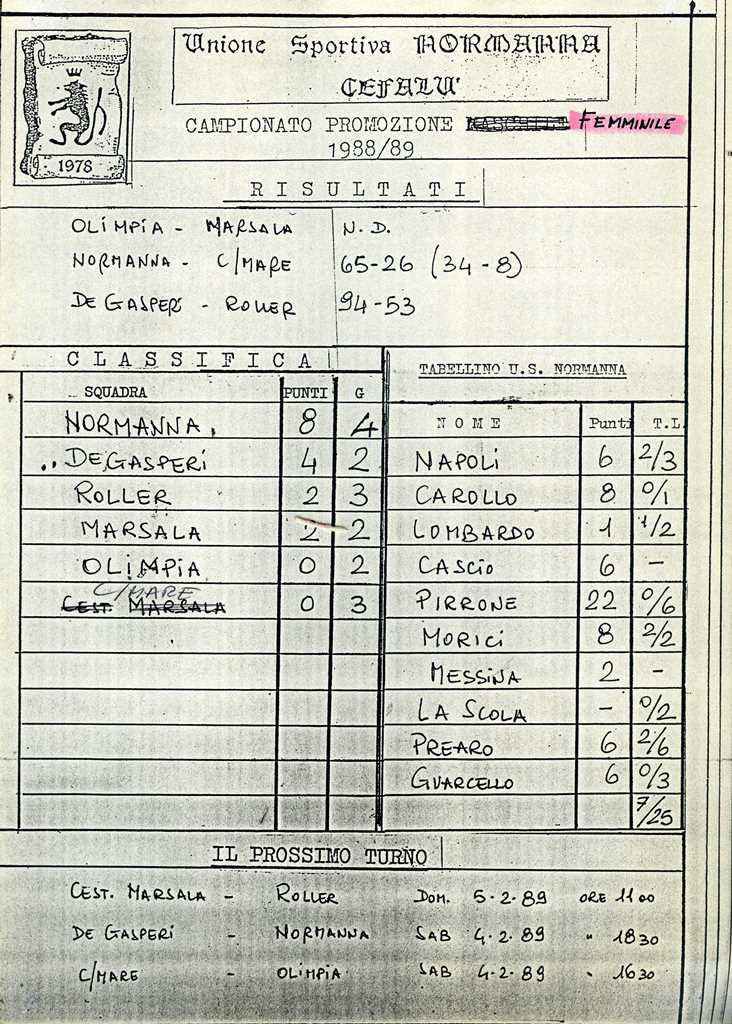 Unione Sportiva NORMANNA
CEFALU'
1978
CAMPIONATO PROMOZIONE MASCHILE FEMMINILE
1988/89
RISULTATI
OLIMPIA - MARSALA N. D.
NORMANNA - C/MARE 65-26 (34-8)
DE GASPERI - ROLLER 94-53
CLASSIFICA
SQUADRA PUNTI G
NORMANNA 8 4
DE GASPERI 4 2
ROLLER 2 3
MARSALA 2 2
OLIMPIA 0 2
C/MARE
CEST. MARSALA 0 3
TABELLINO U.S. NORMANNA
NOME Punti T.L.
NAPOLI 6 2/3
CAROLLO 8 0/1
LOMBARDO 1 1/2
CASCIO 6 -
PIRRONE 22 0/6
MORICI 8 2/2
MESSINA 2 -
LA SCOLA - 0/2
PREARO 6 2/6
GUARCELLO 6 0/3
7/25
IL PROSSIMO TURNO
CEST. MARSALA - ROLLER DOM. 5.2.89 ORE 11 00
DE GASPERI - NORMANNA SAB 4.2.89 " 18 30
C/MARE - OLIMPIA SAB 4.2.89 " 16 30